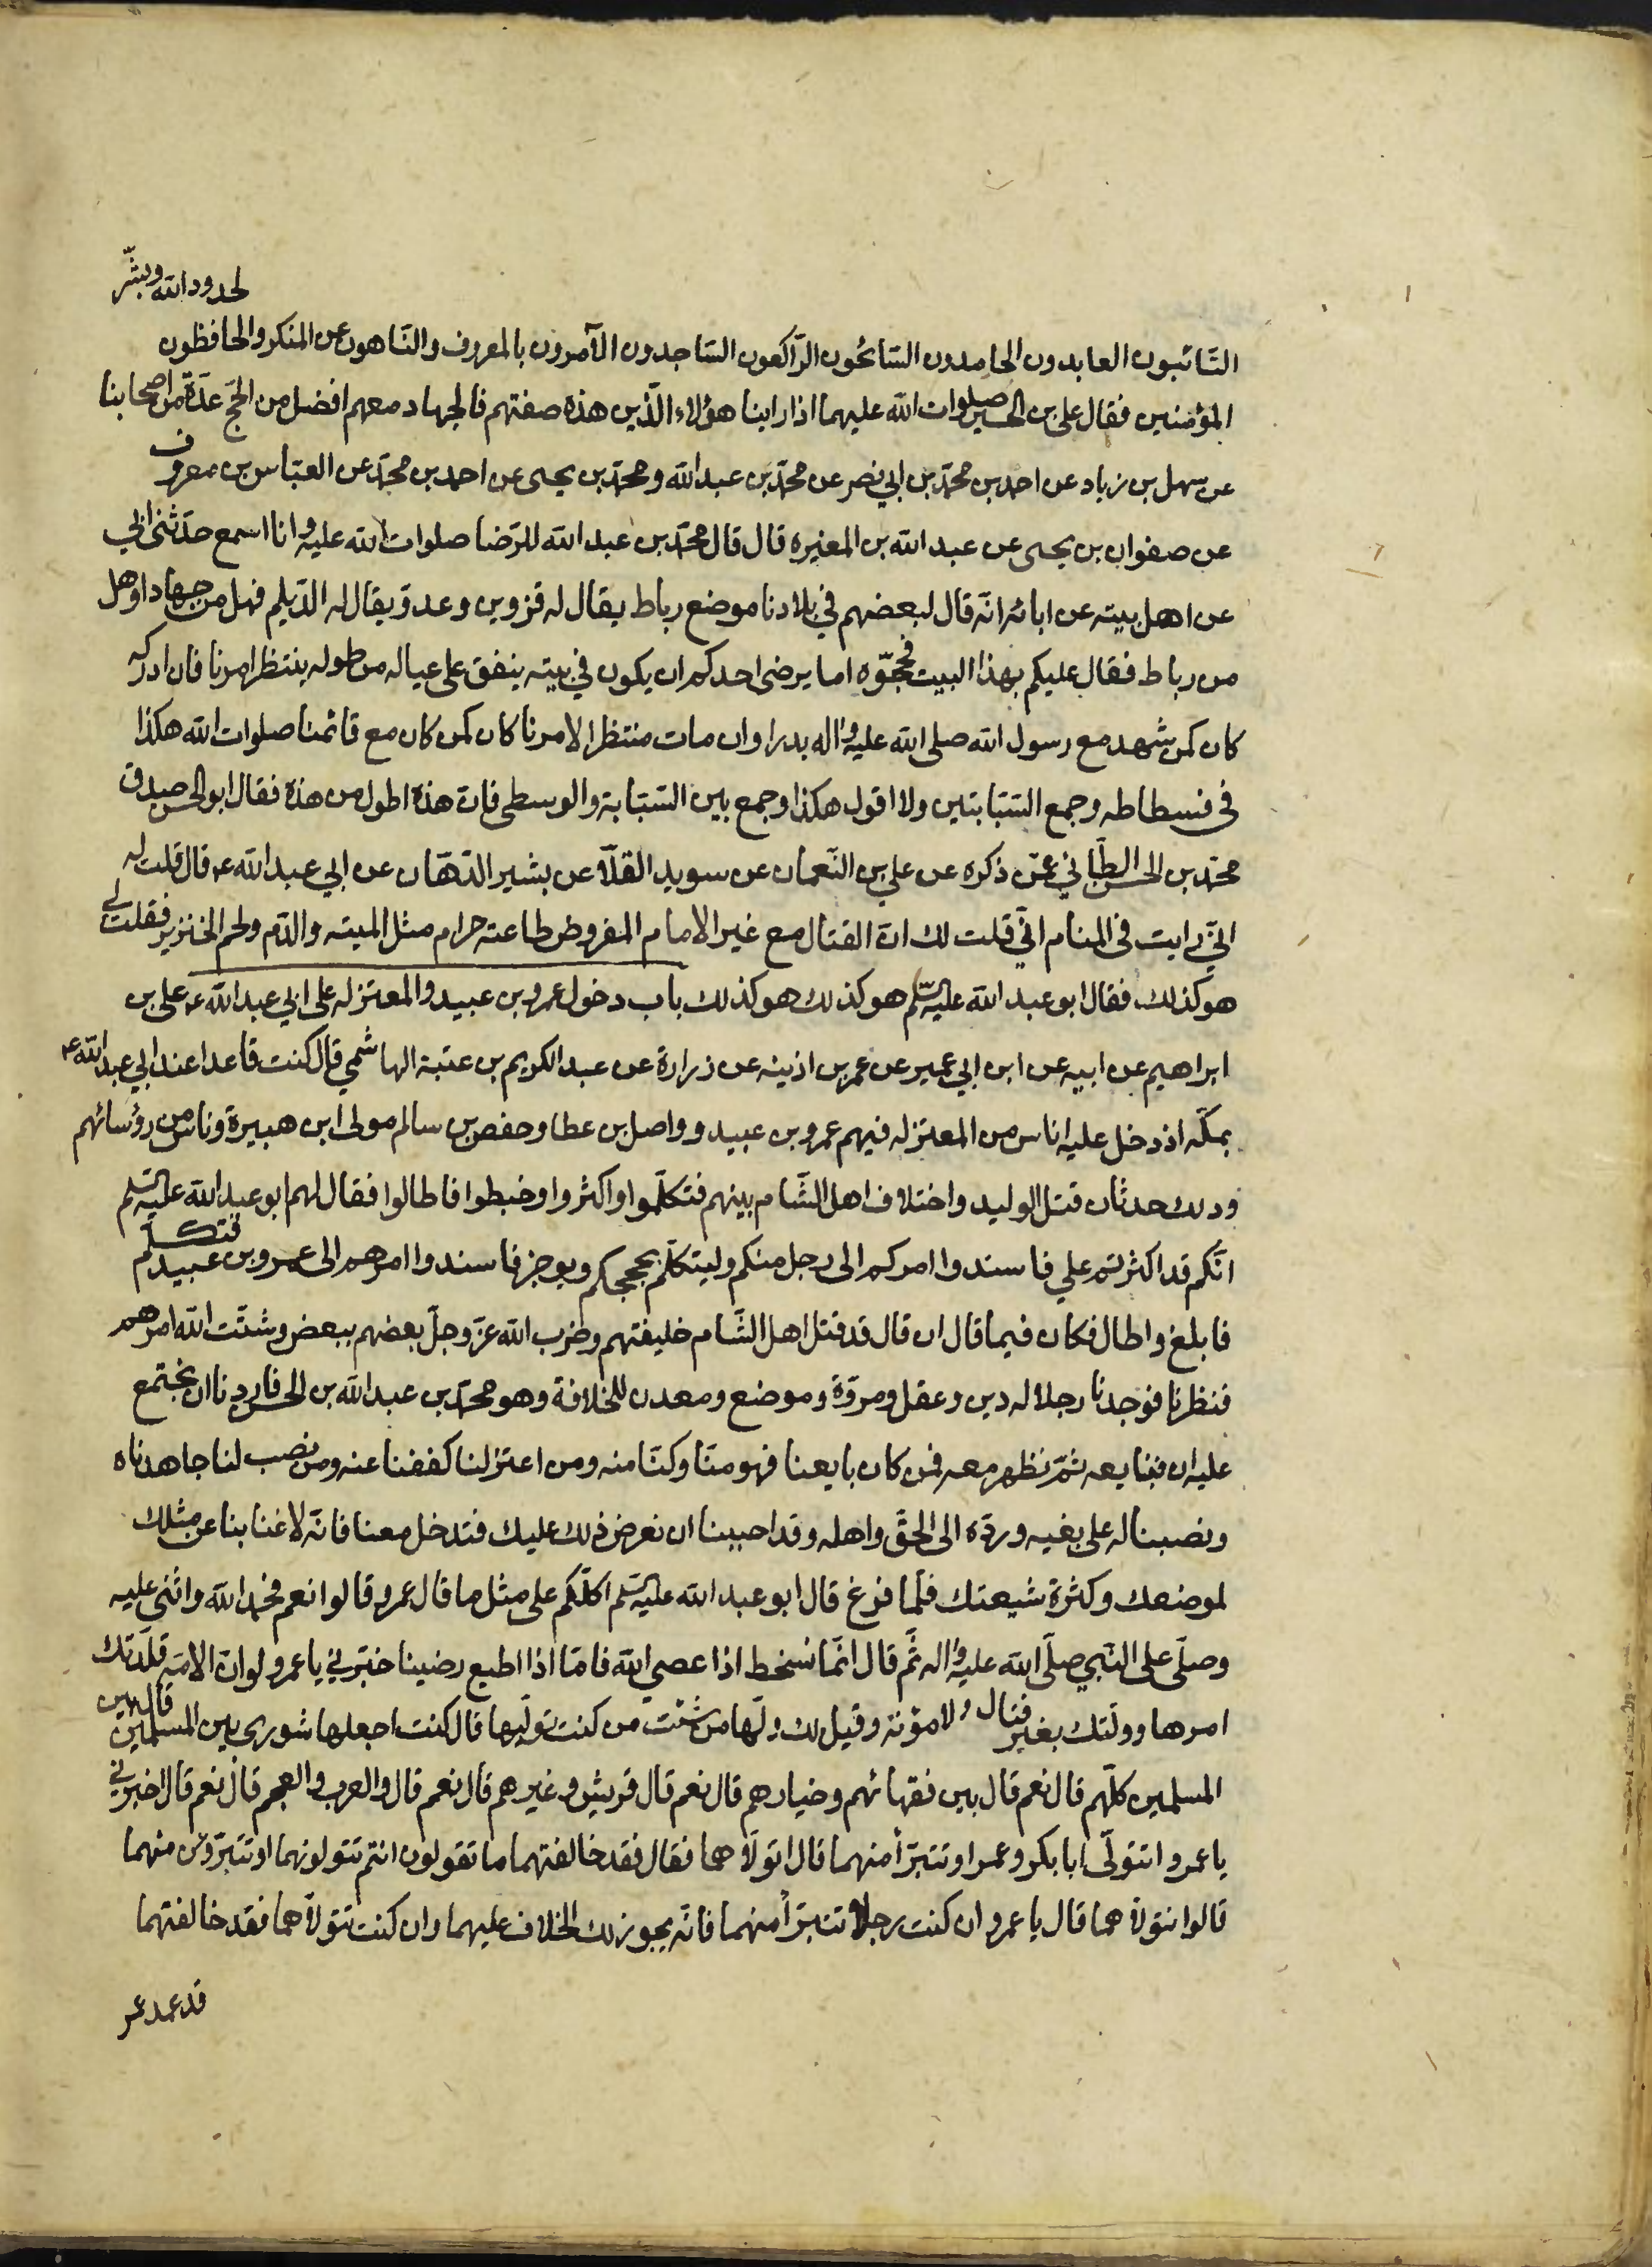 لحدود الله وبشّر
التّائبون العابدون الحامدون السّائحون الرّاكعون السّاجدون الآمرون بالمعروف والنّاهون عن المنكر والحافظون
المؤمنين فقال علي بن الحسين صلوات الله عليهما اذا راينا هؤلاء الّذين هذه صفتهم فالجهاد معهم افضل من الحجّ عدّة من اصحابنا
عن سهل بن زياد عن احمد بن محمّد بن ابي نصر عن محمّد بن عبد الله ومحمّد بن يحيى عن احمد بن محمّد عن العبّاس بن معروف
عن صفوان بن يحيى عن عبد الله بن المغيره قال قال محمّد بن عبد الله للرّضا صلوات الله عليه وانا اسمع حدّثني ابي
عن اهل بيته عن ابائه انّه قال لبعضهم في بلادنا موضع رباط يقال له قزوين وعدوّ يقال له الدّيلم فهل من جهاد او هل
من رباط فقال عليكم بهذا البيت فحجّوه اما يرضى احدكم ان يكون في بيته ينفق على عياله من طوله ينتظر امرنا فان ادركه
كان كمن شهد مع رسول الله صلى الله عليه واله بدرا وان مات منتظرا لامرنا كان كمن كان مع قائمنا صلوات الله هكذا
في فسطاطه وجمع السّبّابتين ولا اقول هكذا وجمع بين السّبّابة والوسطى فانّ هذه اطول من هذه فقال ابو الحسن صدق
محمّد بن الحسن الطّاني عمّن ذكره عن علي بن النّعمان عن سويد القلّا عن بشير الدّهّان عن ابي عبد الله ع قال قلت له
انّي رايت في المنام انّي قلت لك انّ القتال مع غير الامام المفروض طاعته حرام مثل الميته والدّم ولحم الخنزير فقلت لي
هو كذلك فقال ابو عبد الله عليه السّلم هو كذلك هو كذلك باب دخول عمرو بن عبيد والمعتزله على ابي عبد الله ع علي بن
ابراهيم عن ابيه عن ابن ابي عمير عن عمر بن اذينه عن زرارة عن عبد الكريم بن عتبة الهاشمي قال كنت قاعدا عند ابي عبد الله ع
بمكّه اذ دخل عليه اناس من المعتزله فيهم عمرو بن عبيد وواصل بن عطا وحفص بن سالم مولى ابن هبيرة وناس من رؤسائهم
وذلك حدثان قتل الوليد واختلاف اهل الشّام بينهم فتكلّموا واكثروا وخبطوا فاطالوا فقال لهم ابو عبد الله عليه السّلم
انّكم قد اكثرتم علي فاسندوا امركم الى رجل منكم وليتكلّم بحججكم ويوجز فاسندوا امرهم الى عمرو بن عبيد فتكلّم
فابلغ واطال فكان فيما قال ان قال قد قتل اهل الشّام خليفتهم وضرب الله عزّ وجلّ بعضهم ببعض وشتّت الله امرهم
فنظرنا فوجدنا رجلا له دين وعقل ومروّة وموضع ومعدن للخلافة وهو محمّد بن عبد الله بن الحسن فاردنا ان نجتمع
عليه ان فنبايعه ثمّ نظهر معه فمن كان بايعنا فهو منّا وكنّا منه ومن اعتزلنا كففنا عنه ومن نصب لنا جاهدناه
ونصبنا له على بغيه وردّه الى الحقّ واهله وقد احببنا ان نعرض ذلك عليك فتدخل معنا فانّه لا غنا بنا عن مثلك
لموضعك وكثرة شيعتك فلمّا فرغ قال ابو عبد الله عليه السّلم اكلّكم على مثل ما قال عمرو قالوا نعم فحمد الله واثنى عليه
وصلّى على النّبي صلّى الله عليه واله ثمّ قال انّما نسخط اذا عصي الله فامّا اذا اطيع رضينا خبّرني يا عمرو لو انّ الامّه قلّدتك
امرها وولّتك بغير قتال ولا مؤنة وقيل لك ولّها من شئت من كنت تولّيها قال كنت اجعلها شورى بين المسلمين قال بين
المسلمين كلّهم قال نعم قال بين فقهائهم وخيارهم قال نعم قال قريش وغيرهم قال نعم قال والعرب والعجم قال نعم قال اخبرني
يا عمرو اتتولّى ابا بكر وعمر او تتبرّأ منهما قال اتولّاهما فقال فقد خالفتهما ما تقولون انتم تتولونهما او تتبرّؤن منهما
قالوا نتولّاهما قال يا عمرو ان كنت رجلا تتبرّأ منهما فانّه يجوز لك الخلاف عليهما وان كنت تتولاّهما فقد خالفتهما
قد عهد عمر